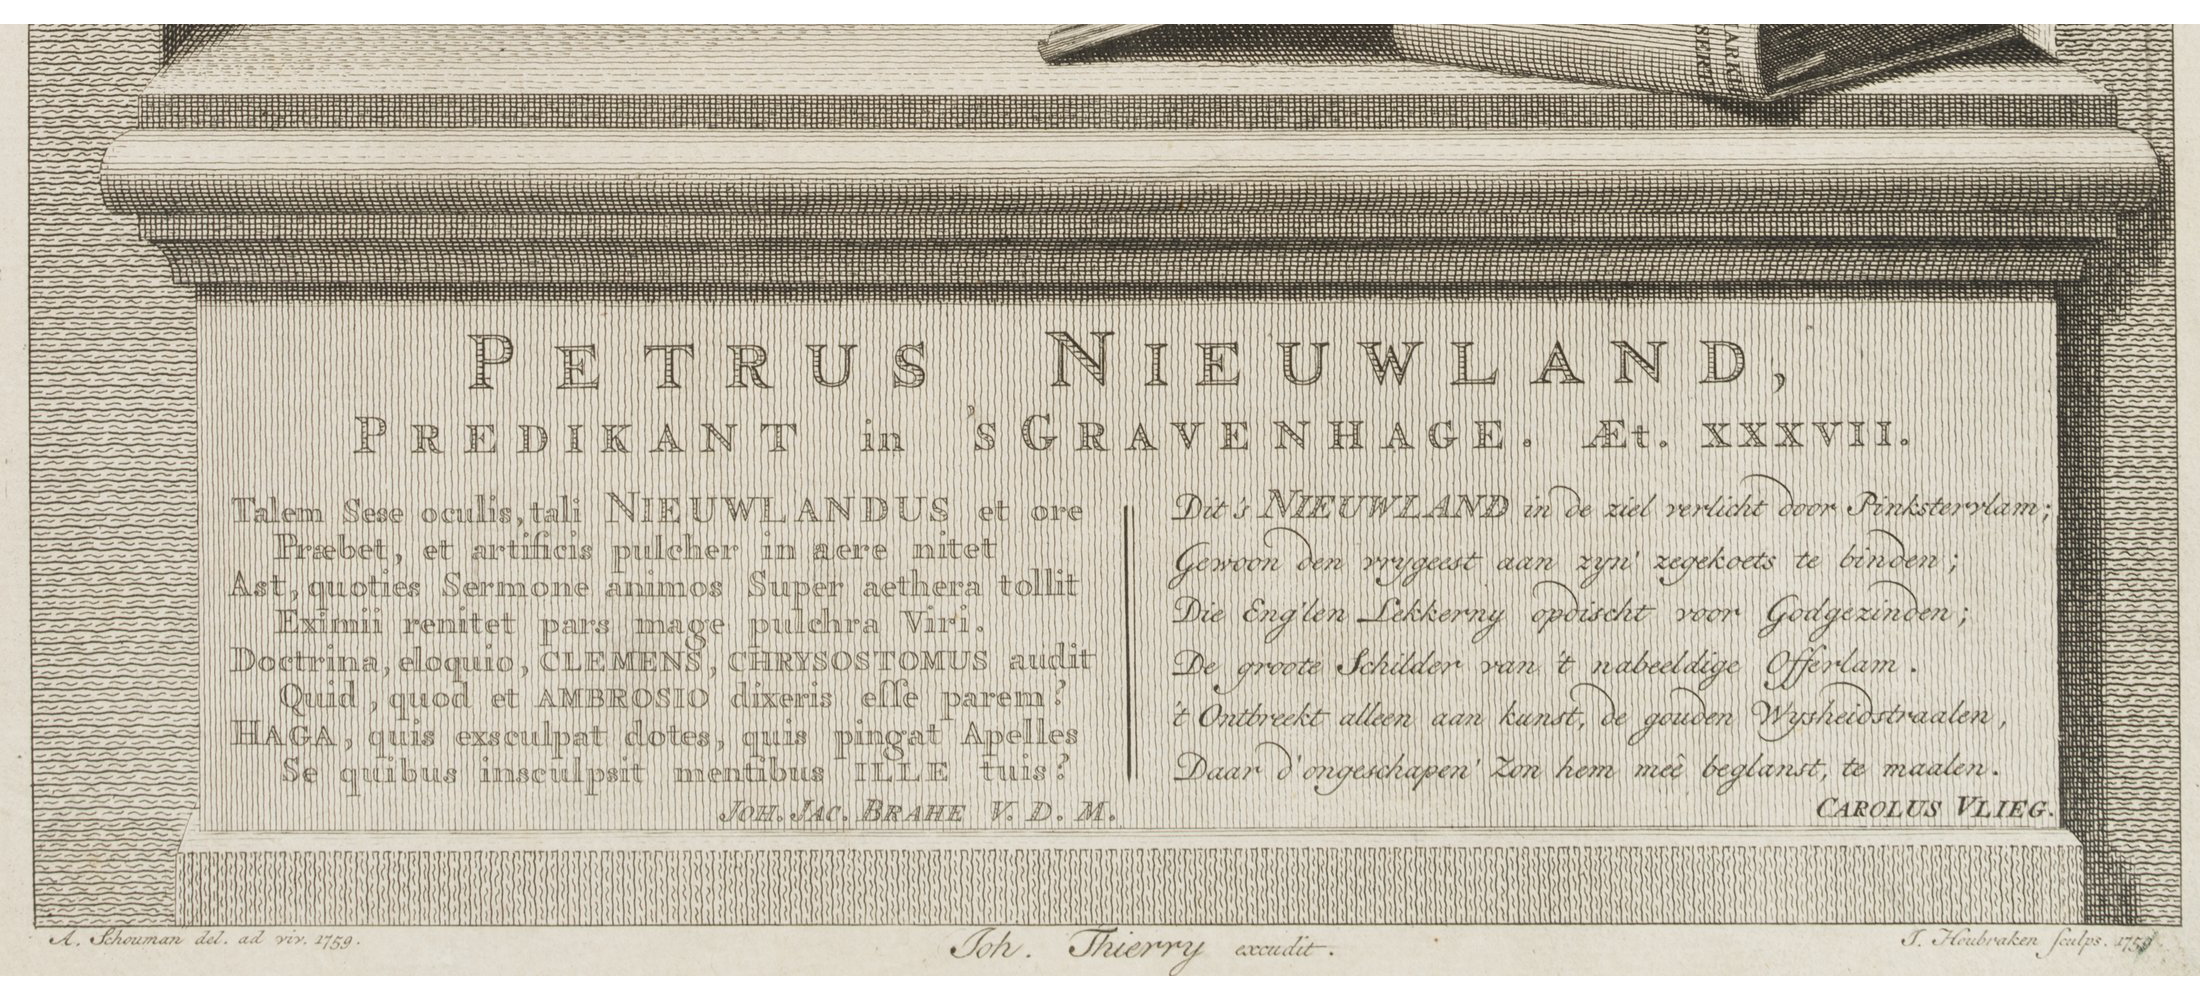 PETRUS NIEUWLAND,
PREDIKANT in 'sGRAVENHAGE. Æt. XXXVII.
Talem Sese oculis, tali NIEUWLANDUS et ore
Præbet, et artificis pulcher in aere nitet
Ast, quoties Sermone animos Super aethera tollit
Eximii renitet pars mage pulchra Viri.
Doctrina, eloquio, CLEMENS, CHRYSOSTOMUS audit
Quid, quod et AMBROSIO dixeris eſſe parem?
HAGA, quis exsculpat dotes, quis pingat Apelles
Se quibus insculpsit mentibus ILLE tuis?
JOH. JAC. BRAHE V. D. M.
Dit's NIEUWLAND in de ziel verlicht door Pinkstervlam;
Gewoon den vrygeest aan zyn' zegekoets te binden;
Die Eng'len Lekkerny opdischt voor Godgezinden;
De groote Schilder van 't nabeeldige Offerlam.
't Ontbreekt alleen aan kunst, de gouden Wysheidstraalen,
Daar d'ongeschapen' Zon hem meê beglanst, te maalen.
CAROLUS VLIEG.
A. Schouman del. ad viv. 1759.
Joh. Thierry excudit.
J. Houbraken ſculps. 1759